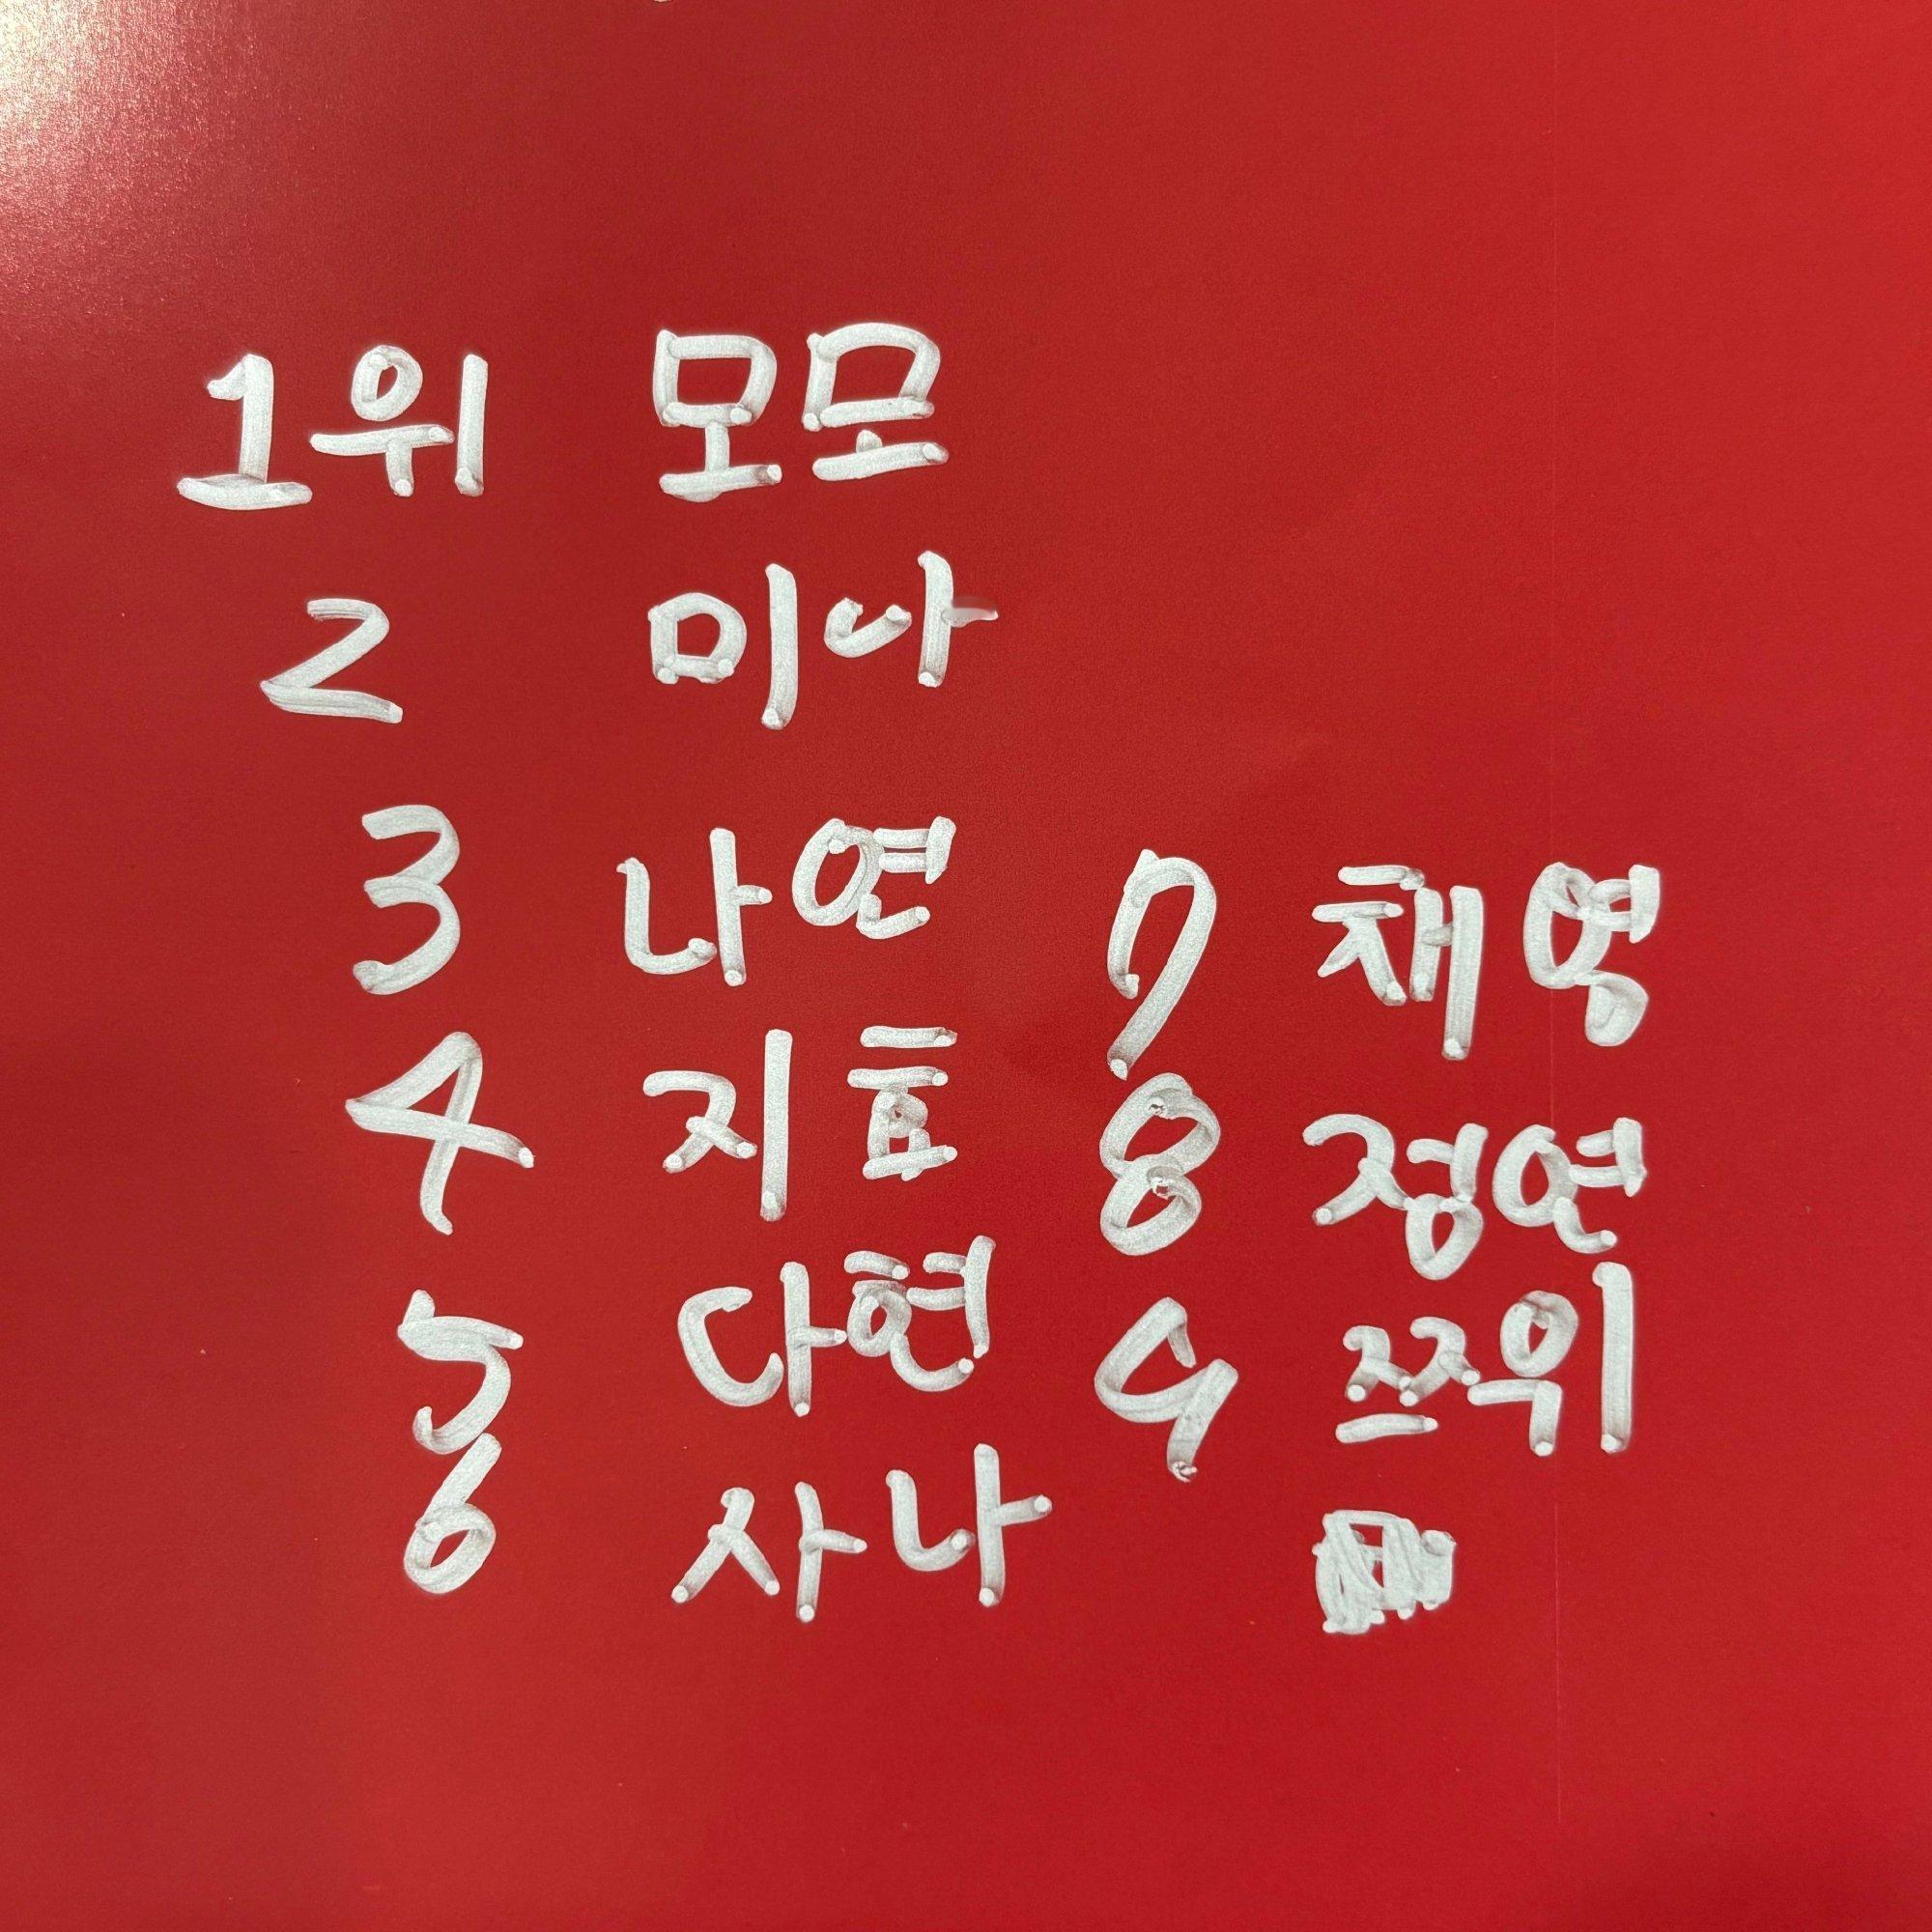 1위 모모
2 미나
3 나연
4 지효
5 다현
6 사나
7 채영
8 정연
9 쯔위